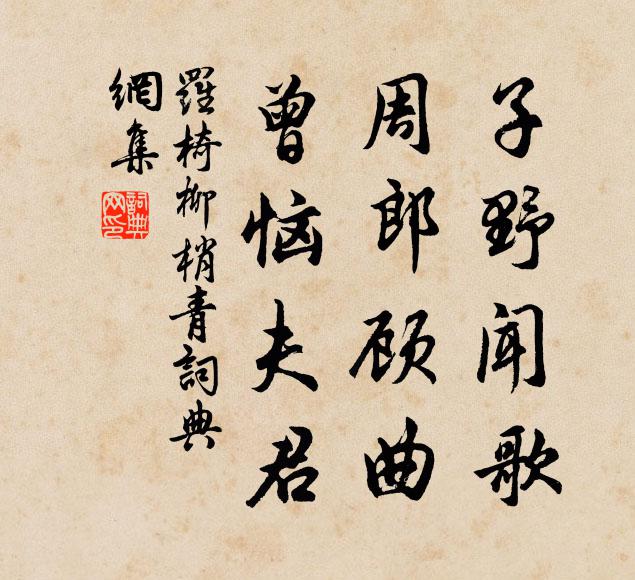 子野闻歌
周郎顾曲
曾恼夫君
羅椅柳梢青詞典
網集
詞典
网印